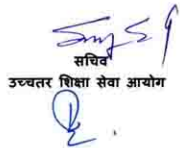 सचिव
उच्चतर शिक्षा सेवा आयोग